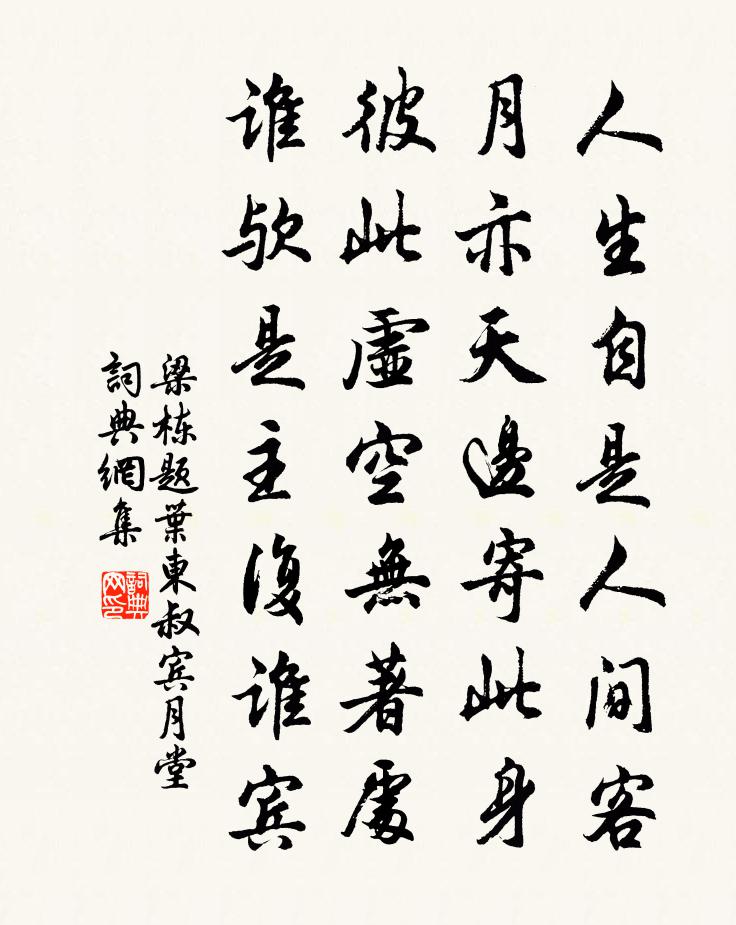 人生自是人间客
月亦天邊寄此身
彼此虚空無著處
谁欤是主復谁宾
梁栋题葉東叔宾月堂
詞典網集
詞典网印